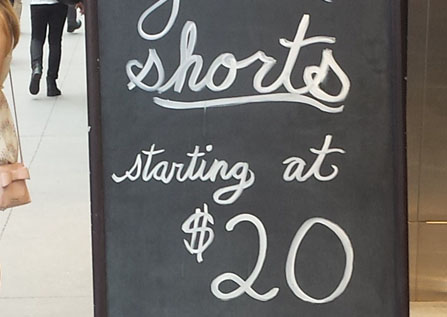 shorts
starting at
$20